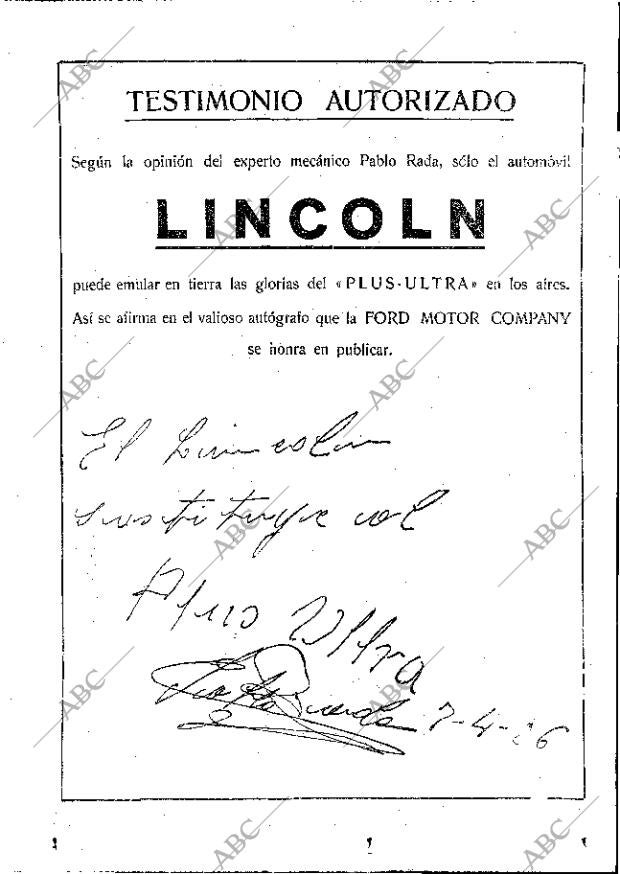 TESTIMONIO AUTORIZADO
Según la opinión del experto mecánico Pablo Rada, sólo el automóvil
LINCOLN
puede emular en tierra las glorias del «PLUS-ULTRA» en los aires.
Así se afirma en el valioso autógrafo que la FORD MOTOR COMPANY
se honra en publicar.
El Lincoln
sustituye al
Plus Ultra
Pablo Rada 7-4-26
ABC
ABC
ABC
ABC
ABC
ABC
ABC
ABC
ABC
ABC
ABC
ABC
ABC